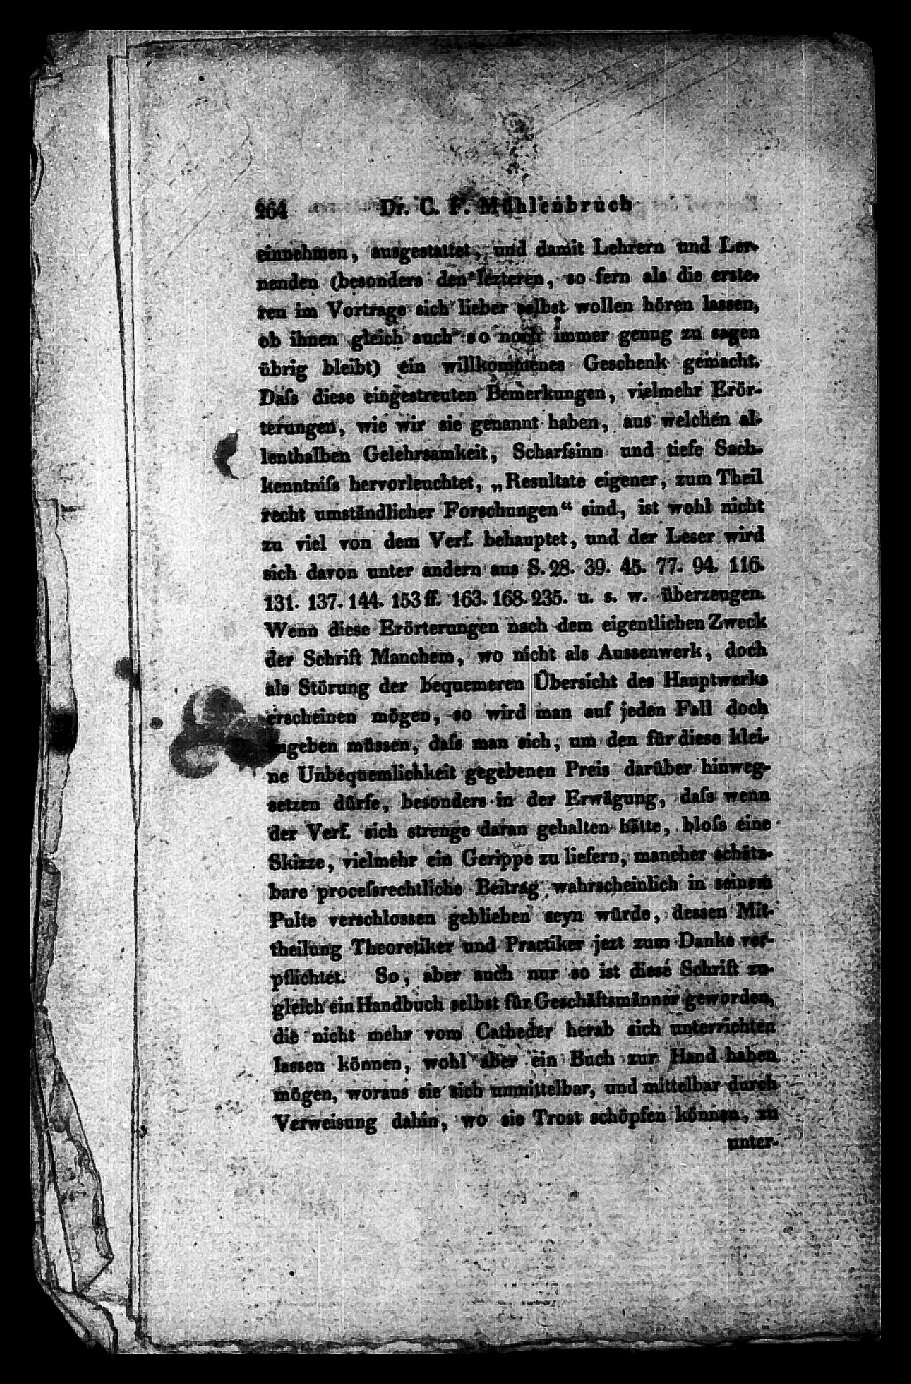 264 Dr. C. F. Mühlenbruch
einnehmen, ausgestattet, und damit Lehrern und Ler-
nenden (besonders den lezteren, so fern als die erste-
ren im Vortrage sich lieber selbst wollen hören lassen,
ob ihnen gleich auch so noch immer genug zu sagen
übrig bleibt) ein willkommenes Geschenk gemacht.
Daſs diese eingestreuten Bemerkungen, vielmehr Erör-
terungen, wie wir sie genannt haben, aus welchen al-
lenthalben Gelehrsamkeit, Scharfsinn und tiefe Sach-
kenntniſs hervorleuchtet, „Resultate eigener, zum Theil
recht umständlicher Forschungen“ sind, ist wohl nicht
zu viel von dem Verf. behauptet, und der Leser wird
sich davon unter andern aus S. 28. 39. 45. 77. 94. 116.
131. 137. 144. 153 ff. 163. 168. 235. u. s. w. überzeugen.
Wenn diese Erörterungen nach dem eigentlichen Zweck
der Schrift Manchem, wo nicht als Aussenwerk, doch
als Störung der bequemeren Übersicht des Hauptwerks
erscheinen mögen, so wird man auf jeden Fall doch
zugeben müssen, daſs man sich, um den für diese klei-
ne Unbequemlichkeit gegebenen Preis darüber hinweg-
setzen dürfe, besonders in der Erwägung, daſs wenn
der Verf. sich strenge daran gehalten hätte, bloſs eine
Skizze, vielmehr ein Gerippe zu liefern, mancher schätz-
bare proceſsrechtliche Beitrag wahrscheinlich in seinem
Pulte verschlossen geblieben seyn würde, dessen Mit-
theilung Theoretiker und Practiker jezt zum Danke ver-
pflichtet. So, aber auch nur so ist diese Schrift zu-
gleich ein Handbuch selbst für Geschäftsmänner geworden,
die nicht mehr vom Catheder herab sich unterrichten
lassen können, wohl aber ein Buch zur Hand haben
mögen, woraus sie sich unmittelbar, und mittelbar durch
Verweisung dahin, wo sie Trost schöpfen können, zu
unter-